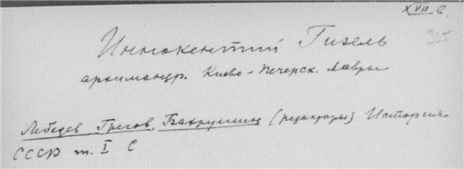 XVII в.
325
Иннокентий Гизель
архимандр. Киево-Печерск. лавры
Лебедев, Греков, Бахрушин (редакторы) История
СССР т. I С